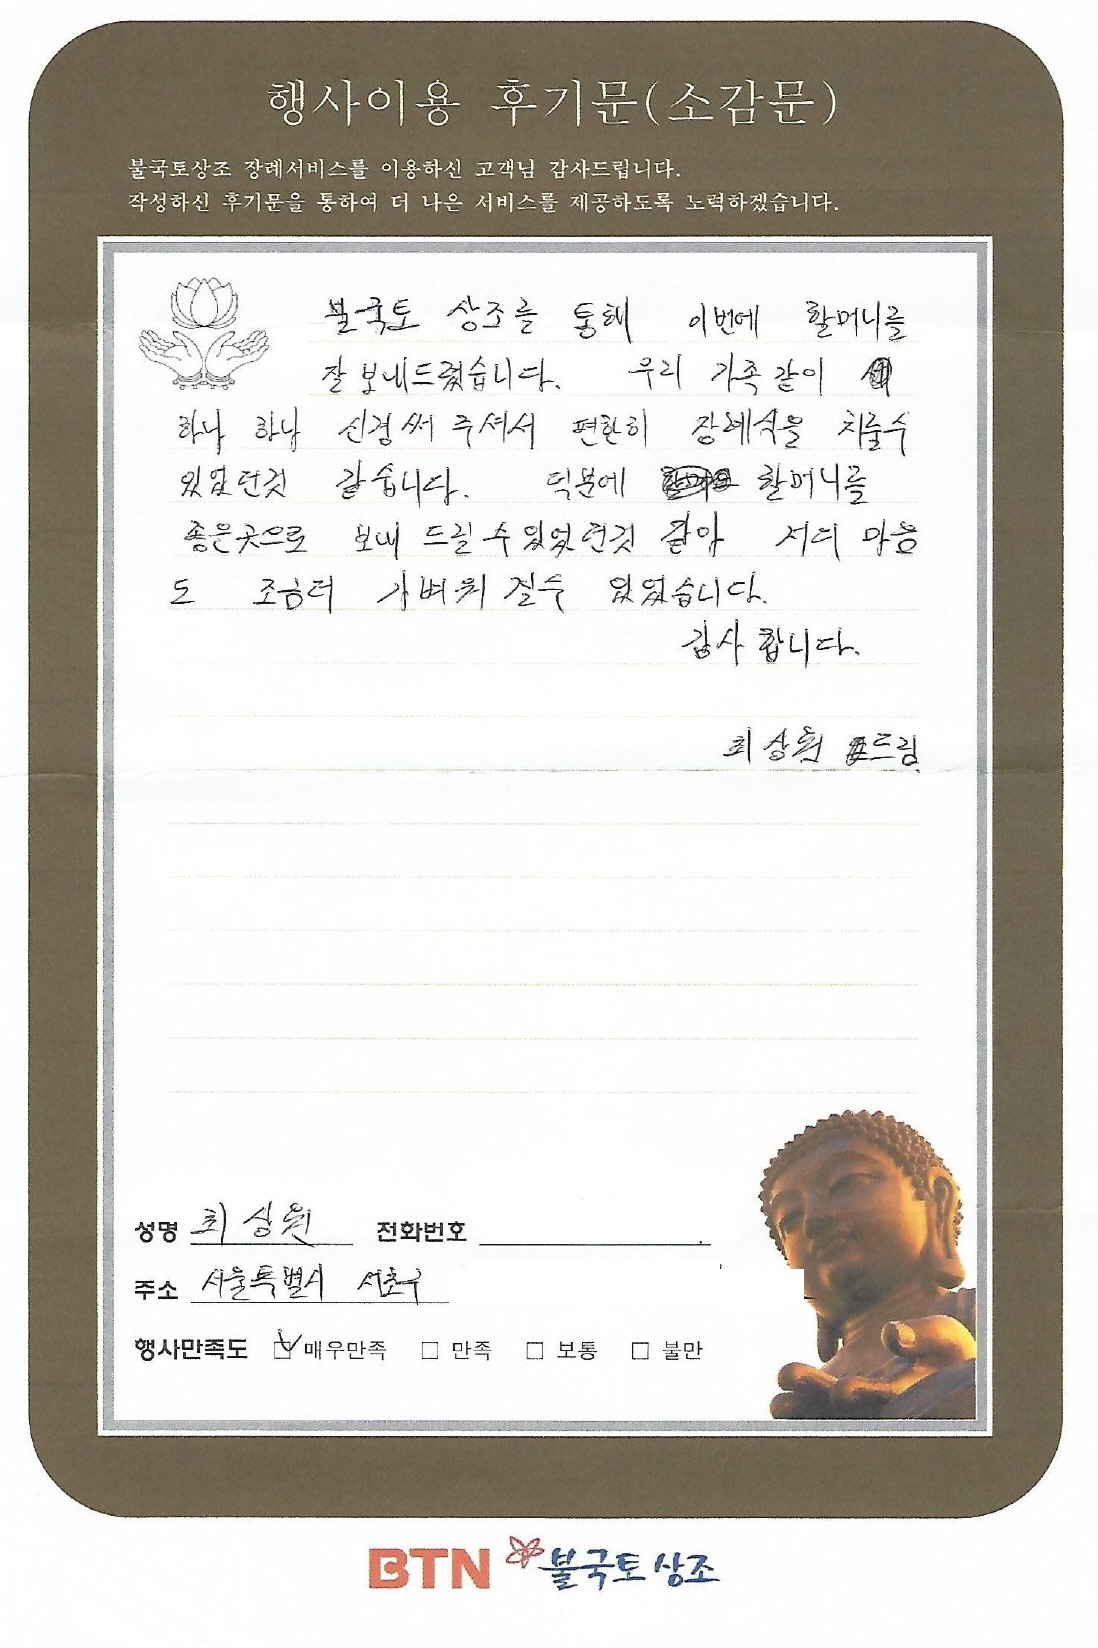 행사이용 후기문(소감문)
불국토상조 장례서비스를 이용하신 고객님 감사드립니다.
작성하신 후기문을 통하여 더 나은 서비스를 제공하도록 노력하겠습니다.
불국토 상조를 통해 이번에 할머니를
잘 보내드렸습니다. 우리 가족같이
하나 하나 신경써 주셔서 편한히 장례식을 치룰수
있었던것 같습니다. 덕분에 할머니를
좋은곳으로 보내 드릴수있었던것 같아 저의 마음
도 조금더 가벼워 질수 있었습니다.
감사 합니다.
최상원 드림
성명 최상원 전화번호
주소 서울특별시 서초구
행사만족도 매우만족 만족 보통 불만
BTN 불국토상조